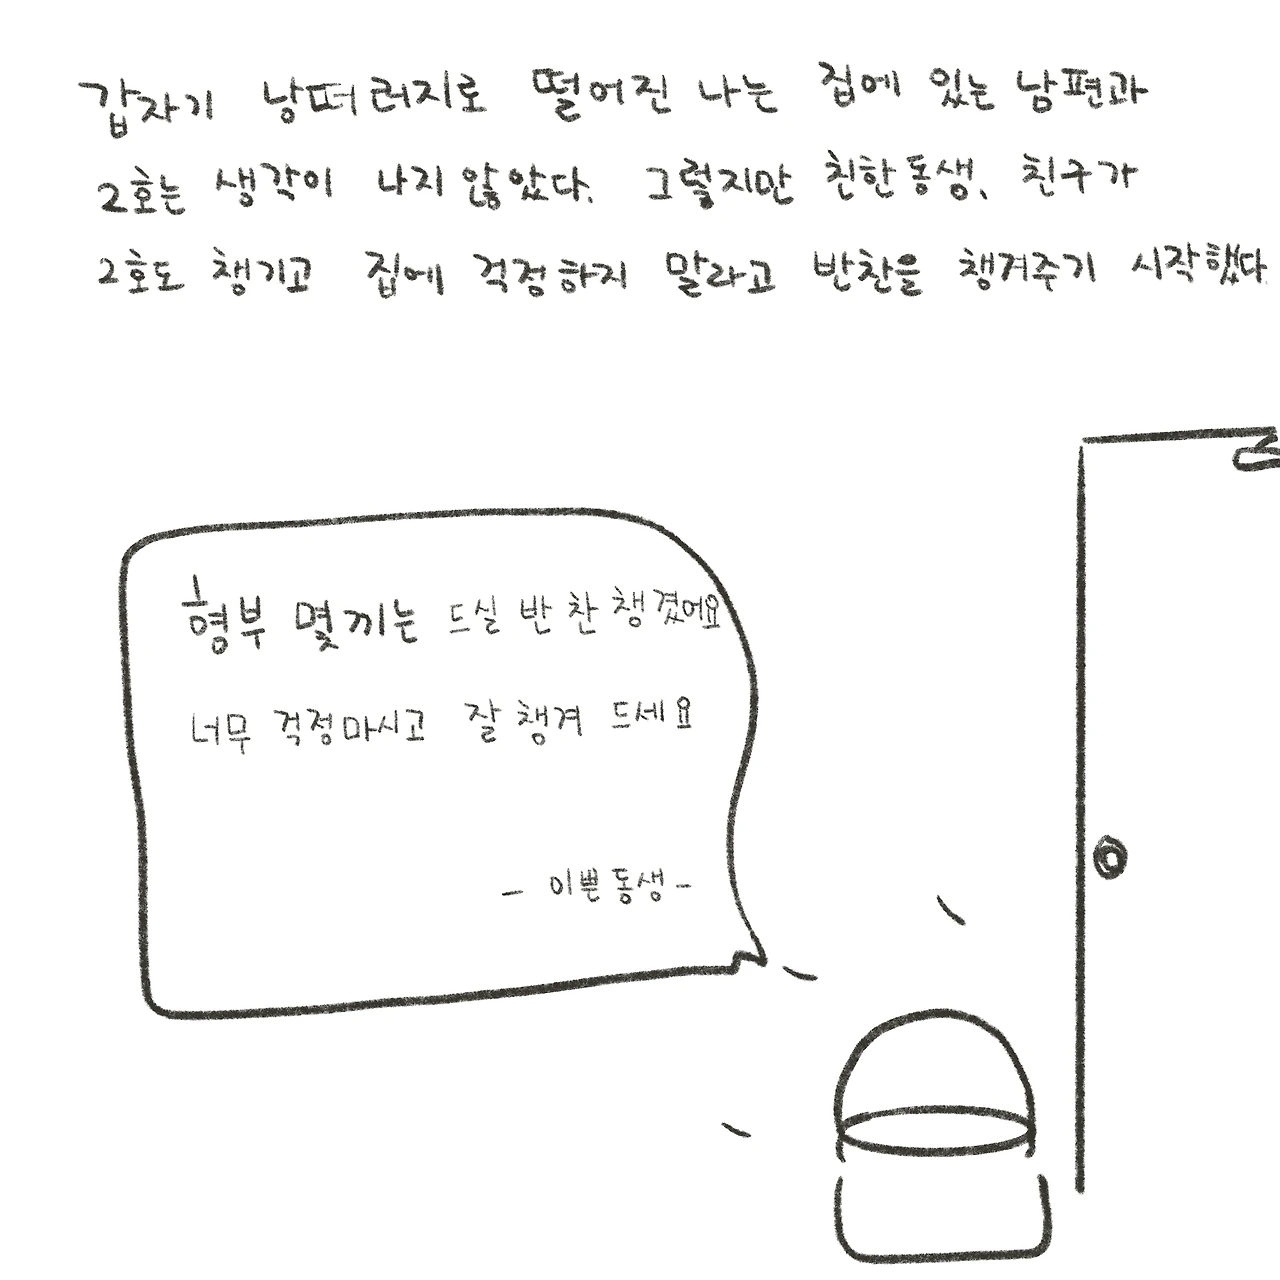 갑자기 낭떠러지로 떨어진 나는 집에 있는 남편과
2호는 생각이 나지 않았다. 그렇지만 친한동생, 친구가
2호도 챙기고 집에 걱정하지 말라고 반찬을 챙겨주기 시작했다.
형부 몇끼는 드실 반찬 챙겼어요
너무 걱정마시고 잘 챙겨 드세요
- 이쁜동생-